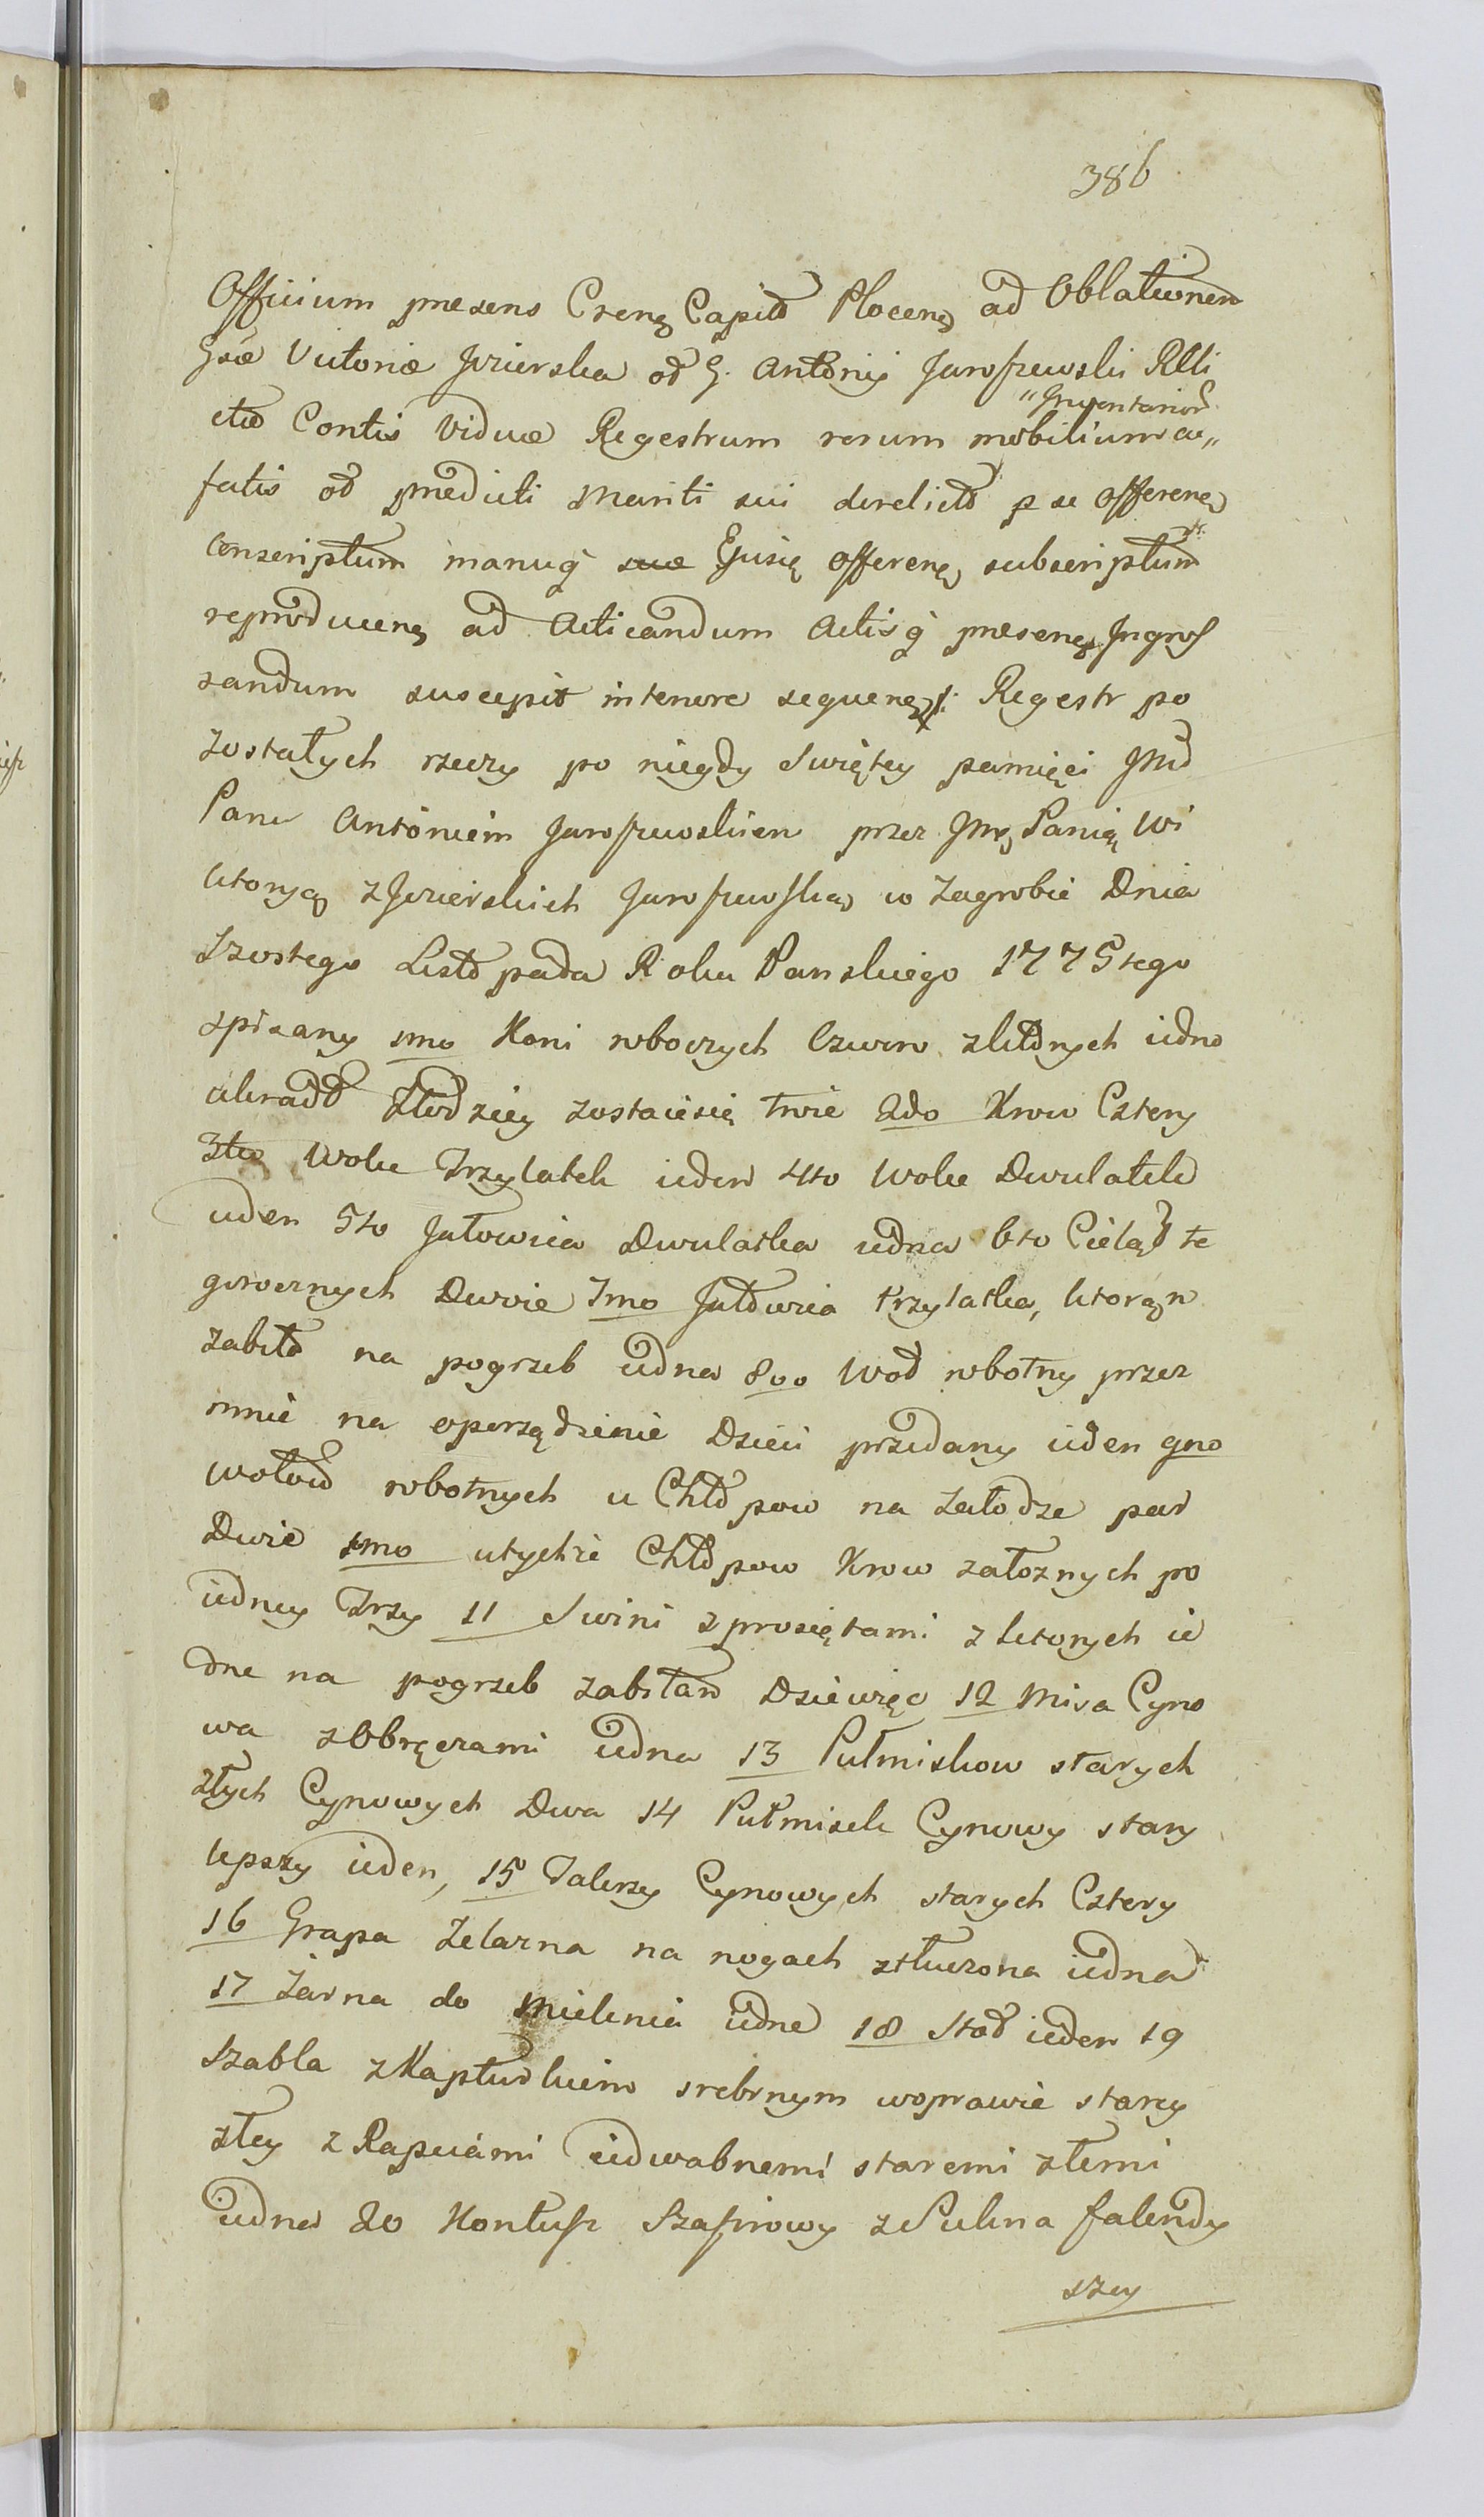 386
Officium presens Crense Capitle Plocense ad Oblationem
Gsæ Victoriæ Jezierska olim G. Antonij Jaroszewski Reli
"Inventarior
ctæ Contis Viduæ Regestrum rerum mobilium ac"
fatis olim prædicti Mariti sui derelict per se offerens
conscriptum manuq suæ Ejusq offerens subscriptum
reproducens ad Acticandum Actisq præsens Ingros
sandum suscepit in tenore sequens /: Regestr po
zostałych rzeczy po niegdy Swiętey pamięci JMć
Panu Antoniem Jaroszewskiem przez JMę Panią Wi
ktoryą z Jezierskich Jaroszewską w Zagrobie Dnia
Szostego Listopada Roku Panskiego 1775tego
spisany 1mo Koni roboczych Czworo z ktornych iedno
ukradł Złodziey zostaie się troie 2do Krow Cztery
3tio Wołu Trzylatek ieden 4to Wołu Dwulatek
ieden 5to Jałowica Dwulatka iedna 6to Cieląt te
gorocznych Dwoie 7mo Jałowica trzylatka, ktorąm
zabiła na pogrzeb iedna 8vo Woł robotny przez
mnie na oporządzenie Dzieci przedany ieden 9no
Wołow robotnych u Chłopow na Załodze par
Dwie 10mo u tychże Chłopow Krow załoznych po
iedney Trzy 11 Swini z prosiętami z ktorych ie
dne na pogrzeb zabiłam Dziewięc 12 Misa Cyno
wa z Obręczami iedna 13 Pułmiskow starych
złych Cynowych Dwa 14 Pułmisek Cynowy stary
lepszy ieden, 15 Talerzy Cynowych starych Cztery
16 Grapa Zelazna na nogach stłuczona iedna
17 Żarna do Mielenia iedne 18 Stoł ieden 19
Szabla z Kapturkiem srebrnym w oprawie starey
złey z Rapciami iedwabnemi staremi złemi
iedna 20 Kontusz Szafirowy z Sukna falendy
szey